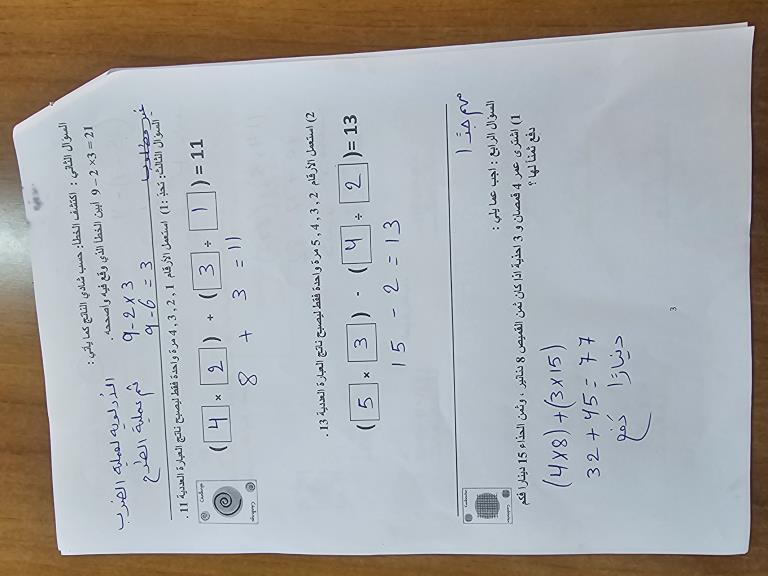 السؤال الثاني : اكتشف الخطا: حسب شادي الناتج كما يأتي :
9 – 2 ×3 = 21 ابين الخطا الذي وقع فيه واصححه.
9-2×3
9-6=3
الأولوية لعملية الضرب
ثم عملية الطرح
غير مطلوب
السؤال الثالث: تحدٍ : 1) استعمل الأرقام 1 , 2 , 3 , 4 مرة واحدة فقط ليصبح ناتج العبارة العددية 11 .
( 4 × 2 ) + ( 3 ÷ 1 ) = 11
8 + 3 = 11
2) استعمل الأرقام 2 , 3 , 4 , 5 مرة واحدة فقط ليصبح ناتج العبارة العددية 13 .
( 5 × 3 ) - ( 4 ÷ 2 ) = 13
15 - 2 = 13
مهم جدًا
السؤال الرابع : اجب عما يلي :
1) اشترى عمر 4 قمصان و 3 احذية اذا كان ثمن القميص 8 دنانير ، وثمن الحذاء 15 دينارا فكم
دفع ثمنا لها ؟
(4×8)+(3×15)
32+45=77
دينارًا دفع
3